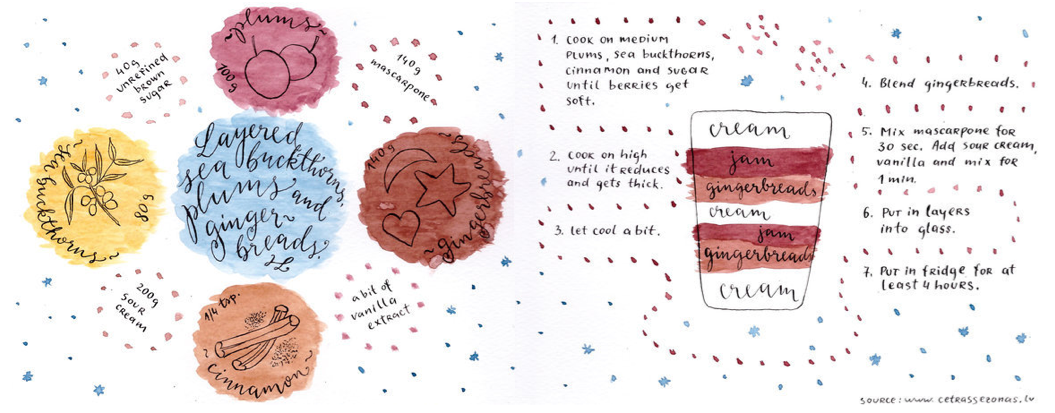 ~plums~
100g
40g
unrefined
brown
sugar
140g
mascarpone
~sea buckthorns~
80g
Layered
sea buckthorns,
plums and
ginger-
breads.
2L
140g
~gingerbreads~
200g
sour
cream
a bit of
vanilla
extract
1/4 tsp.
~cinnamon~
1. Cook on medium
plums, sea buckthorns,
cinnamon and sugar
until berries get
soft.
2. Cook on high
until it reduces
and gets thick.
3. Let cool a bit.
cream
jam
gingerbreads
cream
jam
gingerbreads
cream
4. Blend gingerbreads.
5. Mix mascarpone for
30 sec. Add sour cream,
vanilla and mix for
1 min.
6. Put in layers
into glass.
7. Put in fridge for at
least 4 hours.
source: www.cetrassezonas.lv